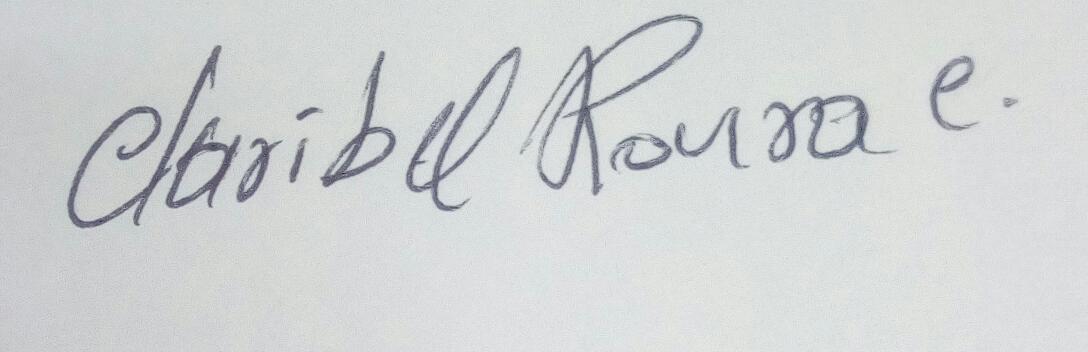 Claribel Roura C.